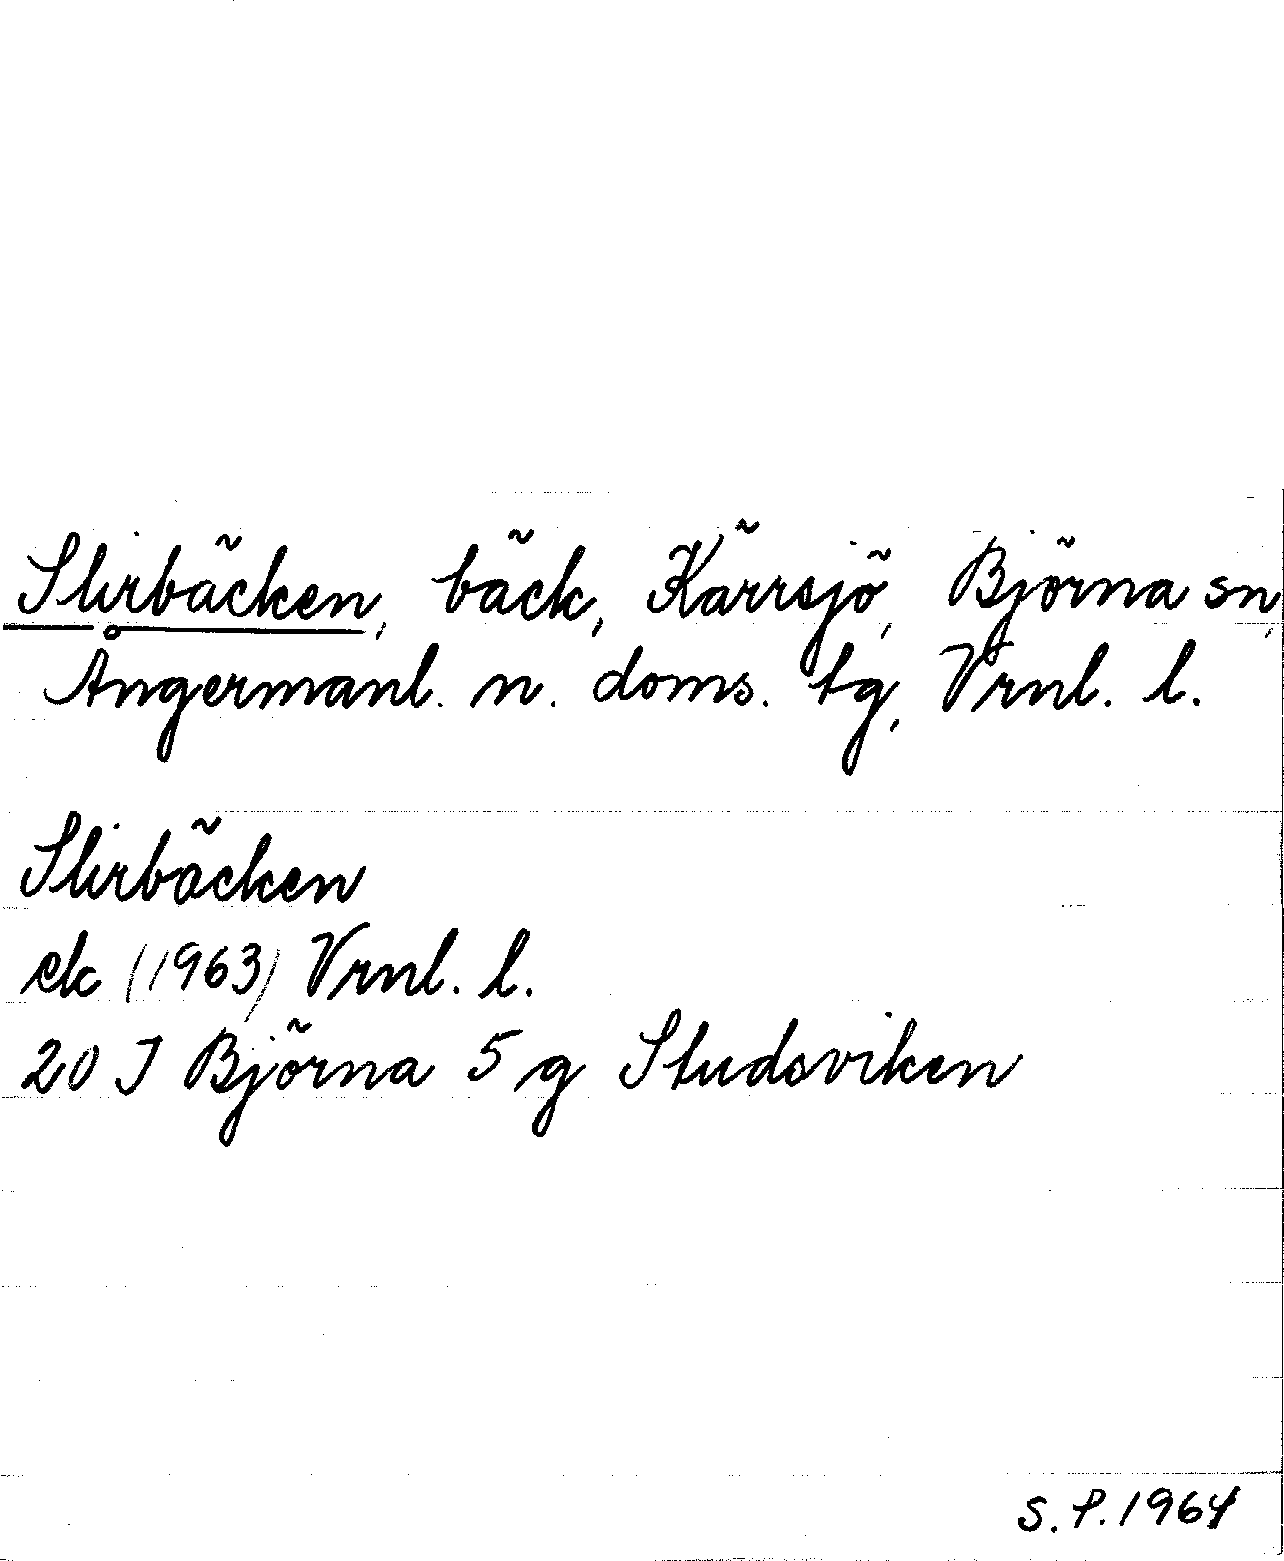 Slirbäcken, bäck, Kärrsjö, Björna sn,
Ångermanl. n. doms. tg, Vrnl. l.
Slirbäcken
ek (1963) Vrnl. l.
20 J Björna 5 g Studsviken
S.P. 1964